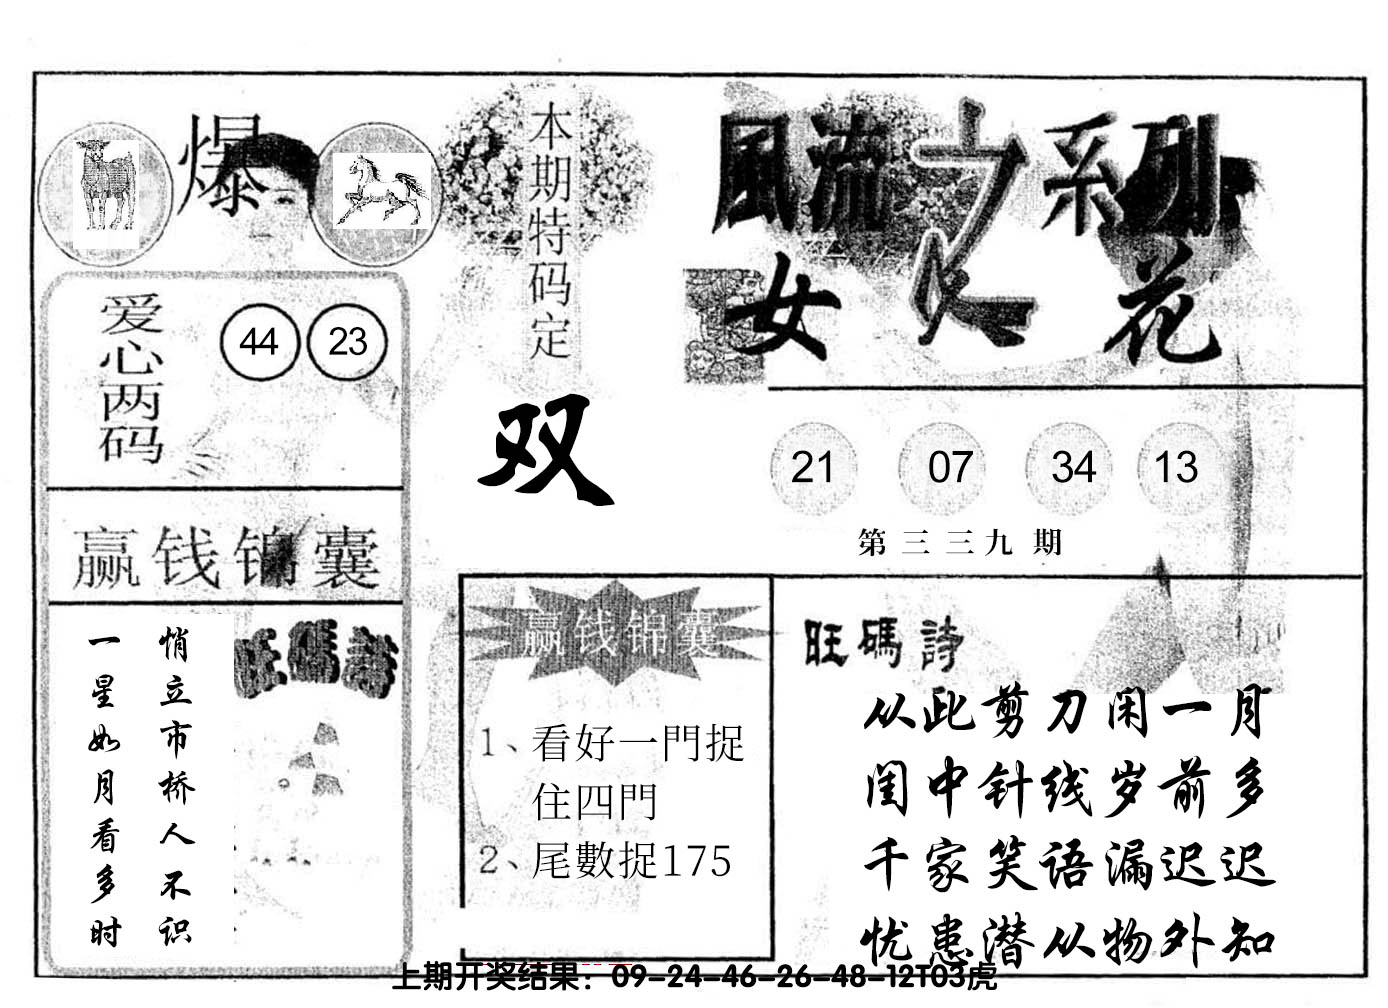 爆
本期特码定
双
風流之系列
女人花
爱心两码
44 23
21 07 34 13
第三三九期
赢钱锦囊
悄立市桥人不识
一星如月看多时
旺碼詩
赢钱锦囊
1、看好一門捉
住四門
2、尾數捉175
旺碼詩
从此剪刀闲一月
闺中针线岁前多
千家笑语漏迟迟
忧患潜从物外知
上期开奖结果：09-24-46-26-48-12T03虎